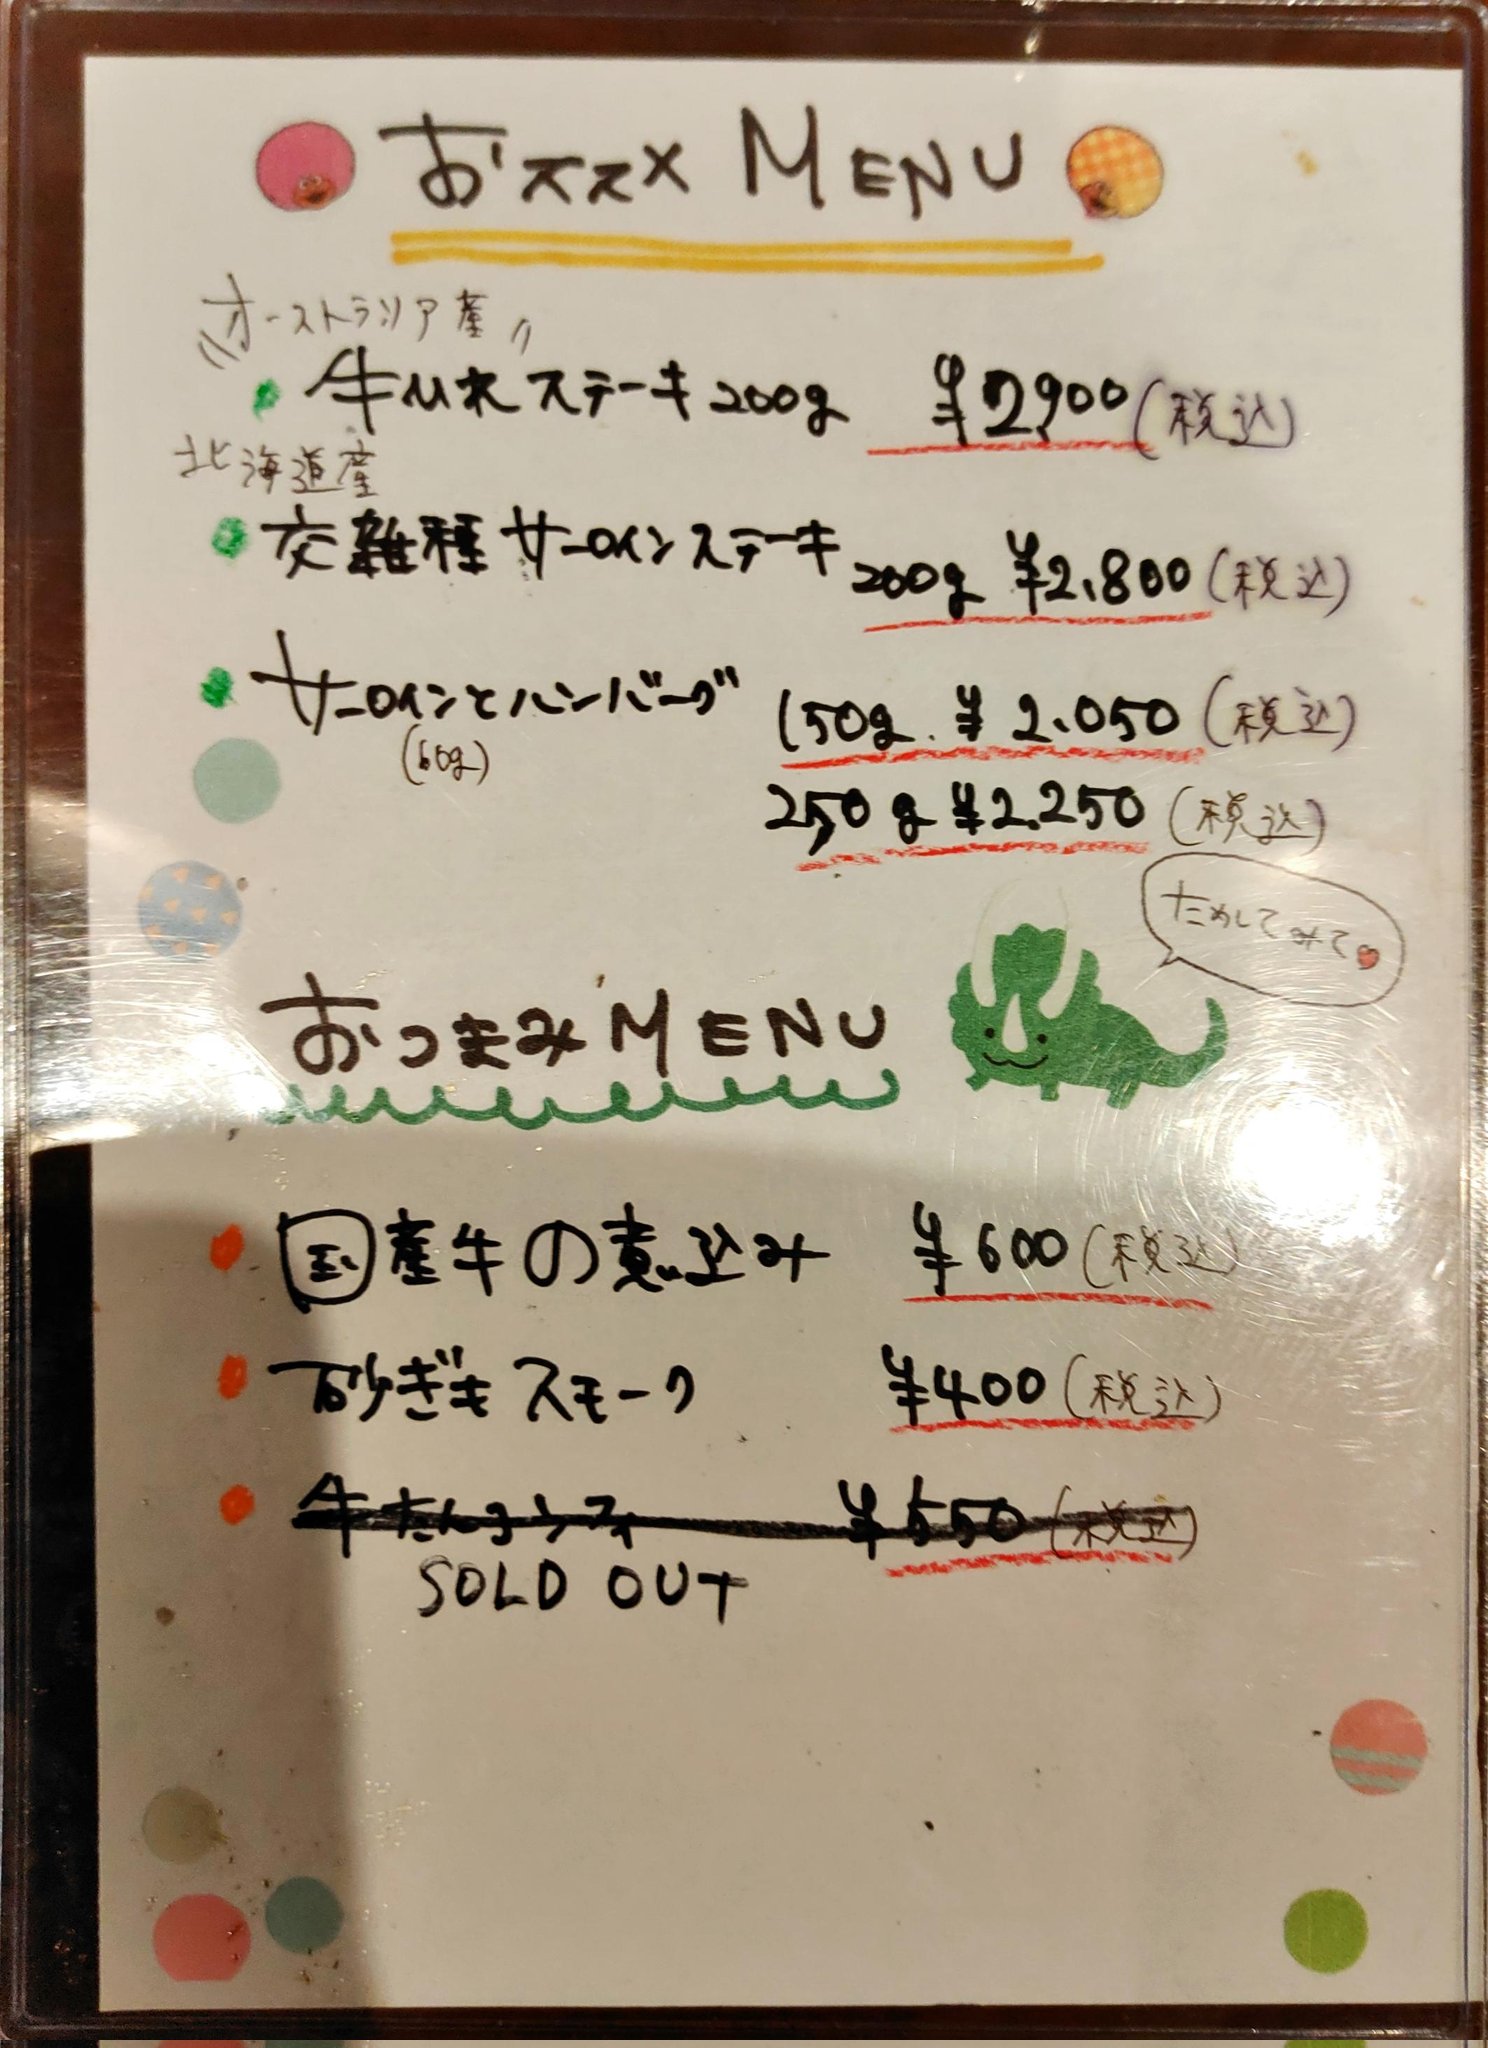 おススメ MENU
オーストラリア産
牛ひれステーキ 200g ¥2,900(税込)
北海道産
交雑種サーロインステーキ 200g ¥2.800(税込)
サーロインとハンバーグ 150g ¥2.050(税込)
(60g)
250g ¥2.250(税込)
ためしてみて
おつまみ MENU
国産牛の煮込み ¥600(税込)
砂ぎもスモーク ¥400(税込)
牛たんコンフィ ¥550(税込)
SOLD OUT